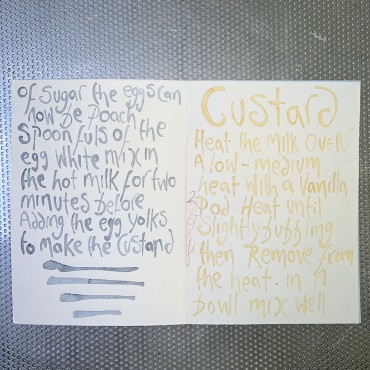 of sugar the eggs can
now be poach
spoon fuls of the
egg white mix in
the hot milk for two
minutes before
Adding the egg yolks
to make the custand
Custard
Heat the Milk Over
A low-medium
heat with a Vanilla
Pod Heat until
Slightly bubbling
then Remove from
the heat. in A
bowl mix well